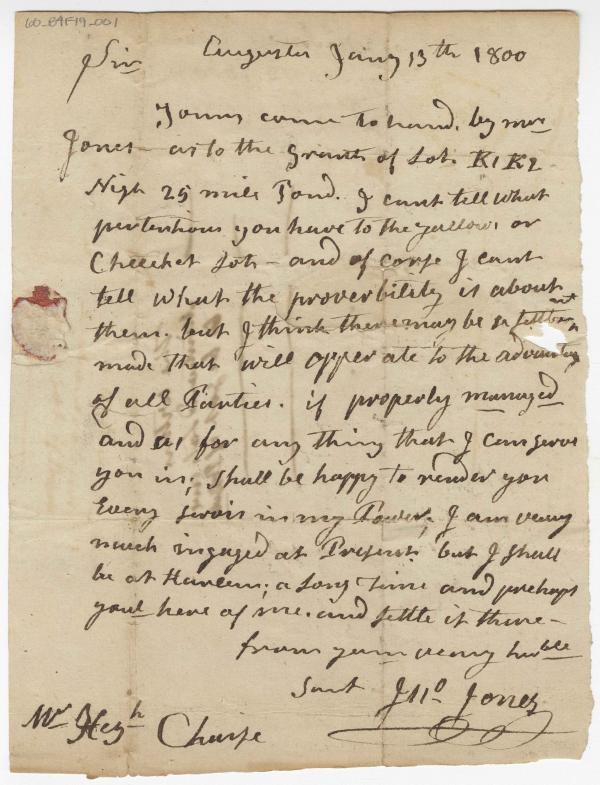 60_B4F19_001
Sir Augusta Jany 13th 1800
Yours came to hand. by mr
Jones - as to the Grants of Lot. K1 K2
Nigh 25 mile Pond. I cant tell What
pertentions you have to the yallow, or
Checket Lots - and of corse I cant
tell What the proverbility is about
them. but I think there may be a
made that will opperate to the advantag
of all Parties. if properly managed
and as for any thing that I can serve
you in; shall be happy to render you
Every servis in my Power; I am veary
much ingaged at Present. but I shall
be at Harlem; a Long Time and prehaps
youl here of me. and settle it there -
from your veary huble
Sarvt Jno Jones
Mr Hezh Charpe